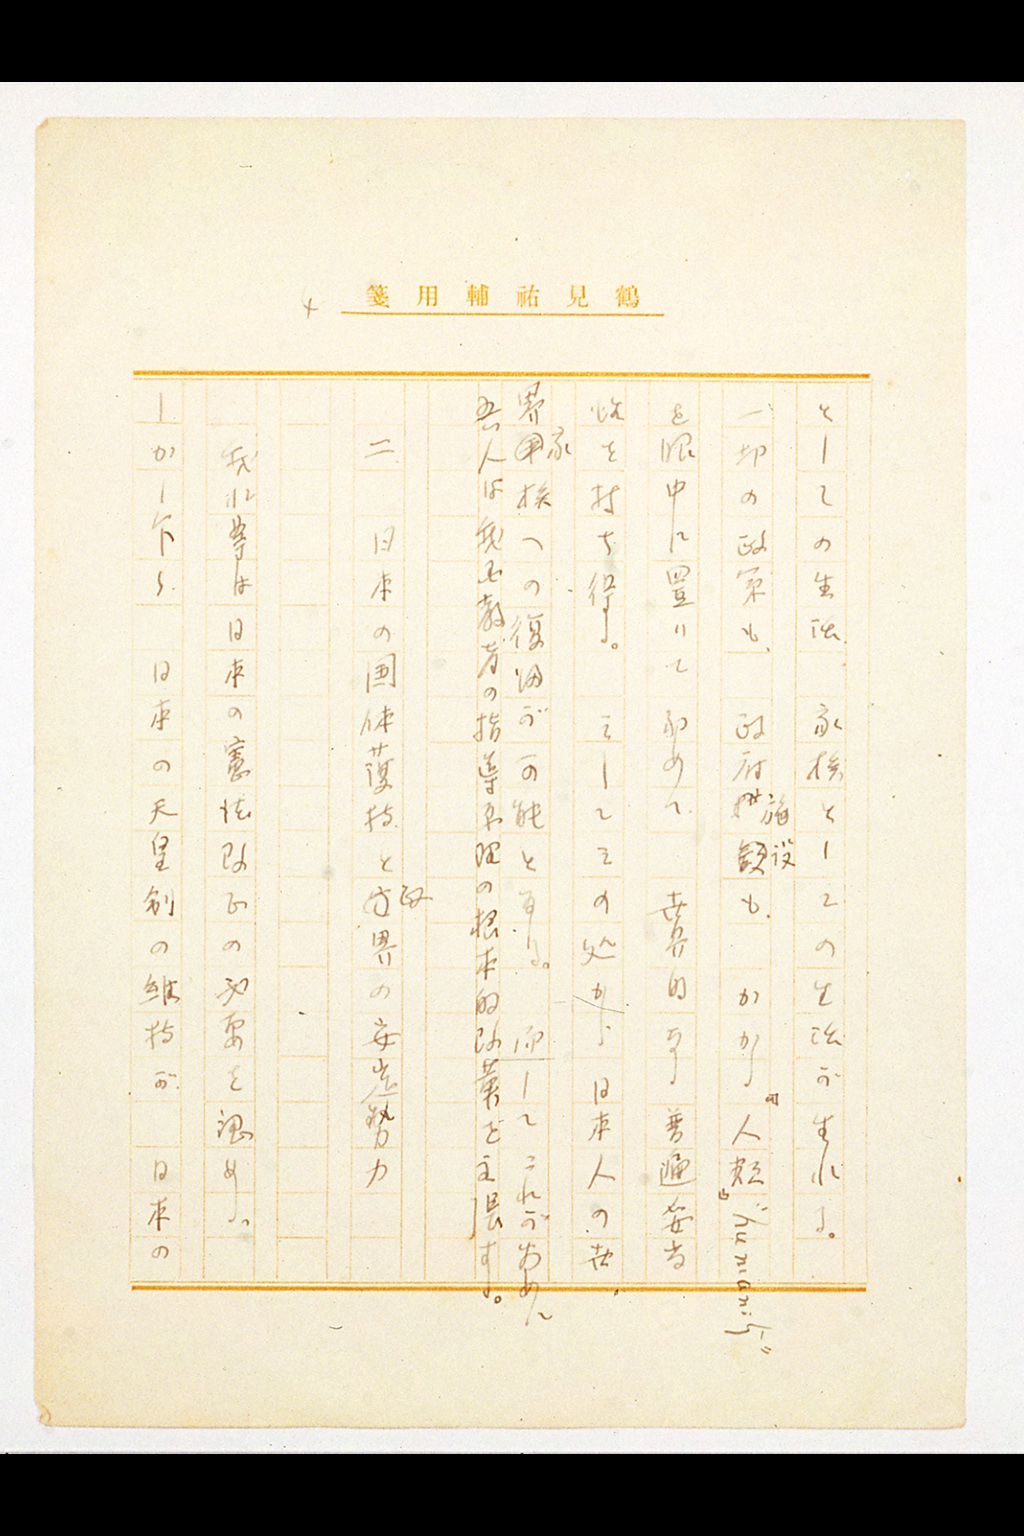 鶴見祐輔用箋
4
としての生活、家族としての生活が生れる。
一切の政策も、政府施設も、かかる『人類』"humanity"
を眼中に置いて初めて、世界的なる普遍妥当
性を持ち得る。そしてその処から日本人の世
界家族への復帰が可能となる。而してこれがために
吾人は我国教育の指導原理の根本的改革を主張する。
二 日本の国体護持と政界の安定勢力
我れ等は日本の憲法改正の必要を認める。
しかし乍ら、日本の天皇制の維持が 日本の